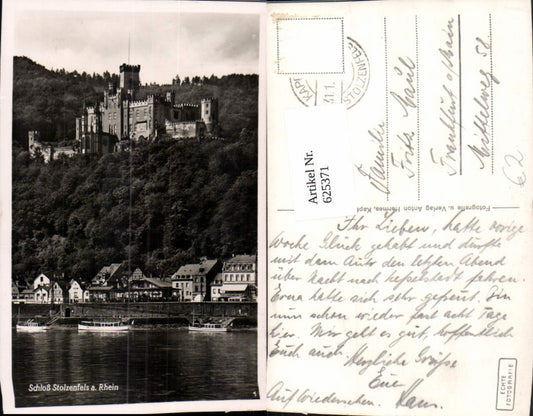 Schloß Stolzenfels a. Rhein
1
Artikel Nr.
625371
STOLZENFEL
31.1.
Familie
Fritz Maul
Frankfurt a/Main
Mittelweg 58
62
Fotografie u. Verlag Anton Hermes, Kapellen
Ihr Lieben, hatte vorige
Woche Glück gehabt und durfte
mit dem Auto den letzten Abend
über Nacht nach Kapellen fahren.
Erna hatte sich sehr gefreut. Bin
nun schon wieder fast acht Tage
hier. Mir geht es gut, hoffentlich
Euch auch. Herzliche Grüße
Euer
Auf Wiedersehen. Hans.
ECHTE
FOTOGRAFIE